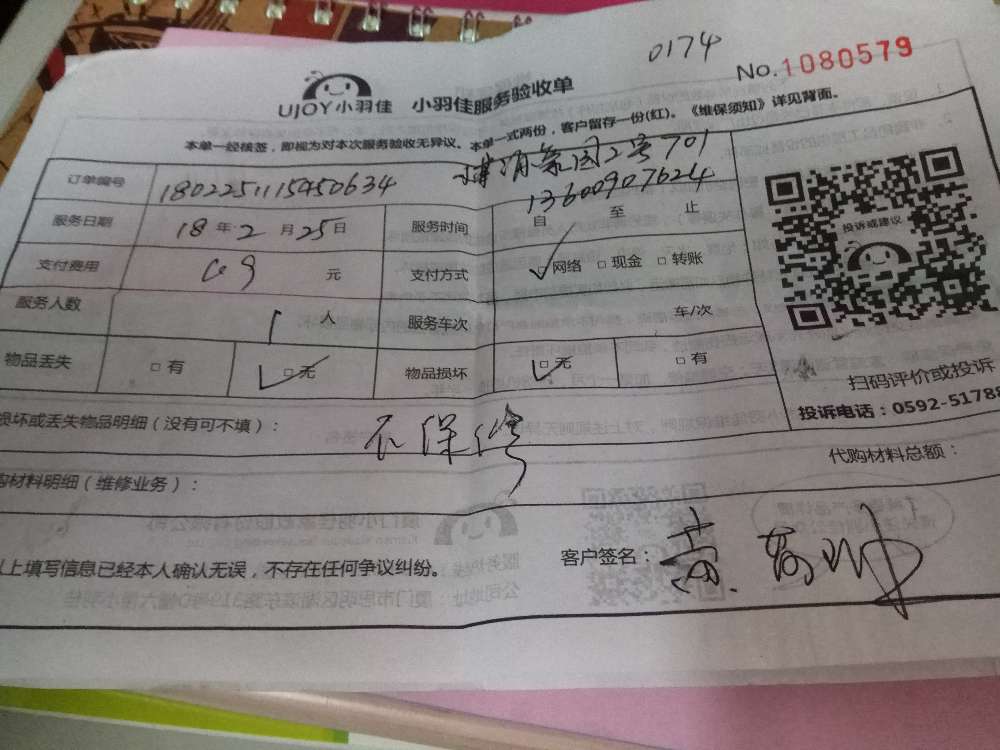 0174
No.1080579
UJOY小羽佳 小羽佳服务验收单
本单一经核签，即视为对本次服务验收无异议。本单一式两份，客户留存一份(红)。《维保须知》详见背面。
2号701
订单编号 1802251115450634 13600907624
服务日期 18年2月25日 服务时间 自 至 止
支付费用 69 元 支付方式 □网络 □现金 □转账
服务人数 1人 服务车次 车/次
物品丢失 □有 □无 物品损坏 □无 □有
投诉或建议
扫码评价或投诉
投诉电话：0592-51788
损坏或丢失物品明细（没有可不填）： 不保修
代购材料总额：
购材料明细（维修业务）：
客户签名： 黄
以上填写信息已经本人确认无误，不存在任何争议纠纷。